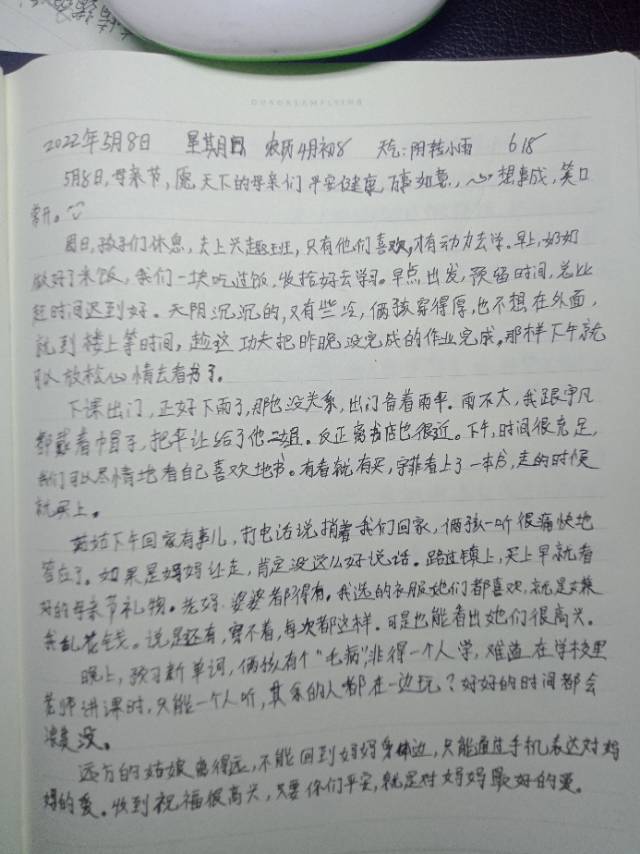 2022年5月8日 星期日 农历4月初8 天气:阴转小雨 618
5月8日,母亲节,愿天下的母亲们平安健康,百事如意,心想事成,笑口
常开。
周日,孩子们休息,去上兴趣班,只有他们喜欢,才有动力去学。早上,奶奶
做好了米饭,我们一块吃过饭,收拾好去学习。早点出发,预留时间,总比
赶时间迟到好。天阴沉沉的,又有些冷,俩孩穿得厚,也不想在外面,
就到楼上等时间,趁这功夫把昨晚没完成的作业完成,那样下午就
可以放松心情去看书了。
下课出门,正好下雨了,那也没关系,出门备着雨伞。雨不大,我跟宇凡
都戴着帽子,把伞让给了他姐。反正离书店也很近。下午,时间很充足,
我们可以尽情地看自己喜欢地书。有看就有买,宇菲看上了一本书,走的时候
就买上。
姑姑下午回家有事儿,打电话说捎着我们回家,俩孩一听很痛快地
答应了。如果是妈妈让走,肯定没这么好说话。路过镇上,买上早就看
好的母亲节礼物。先妈、婆婆都得有。我选的衣服她们都喜欢,就是嫌
我乱花钱。说是还有,穿不着,每次都这样。可是也能看出她们很高兴。
晚上,预习新单词,俩孩有个“毛病”非得一个人学,难道在学校里
老师讲课时,只能一个人听,其余的人都在一边玩?好好的时间都会
浪费没。
远方的姑娘离得远,不能回到妈妈身边,只能通过手机表达对妈
妈的爱。收到祝福很高兴,只要你们平安,就是对妈妈最好的爱。